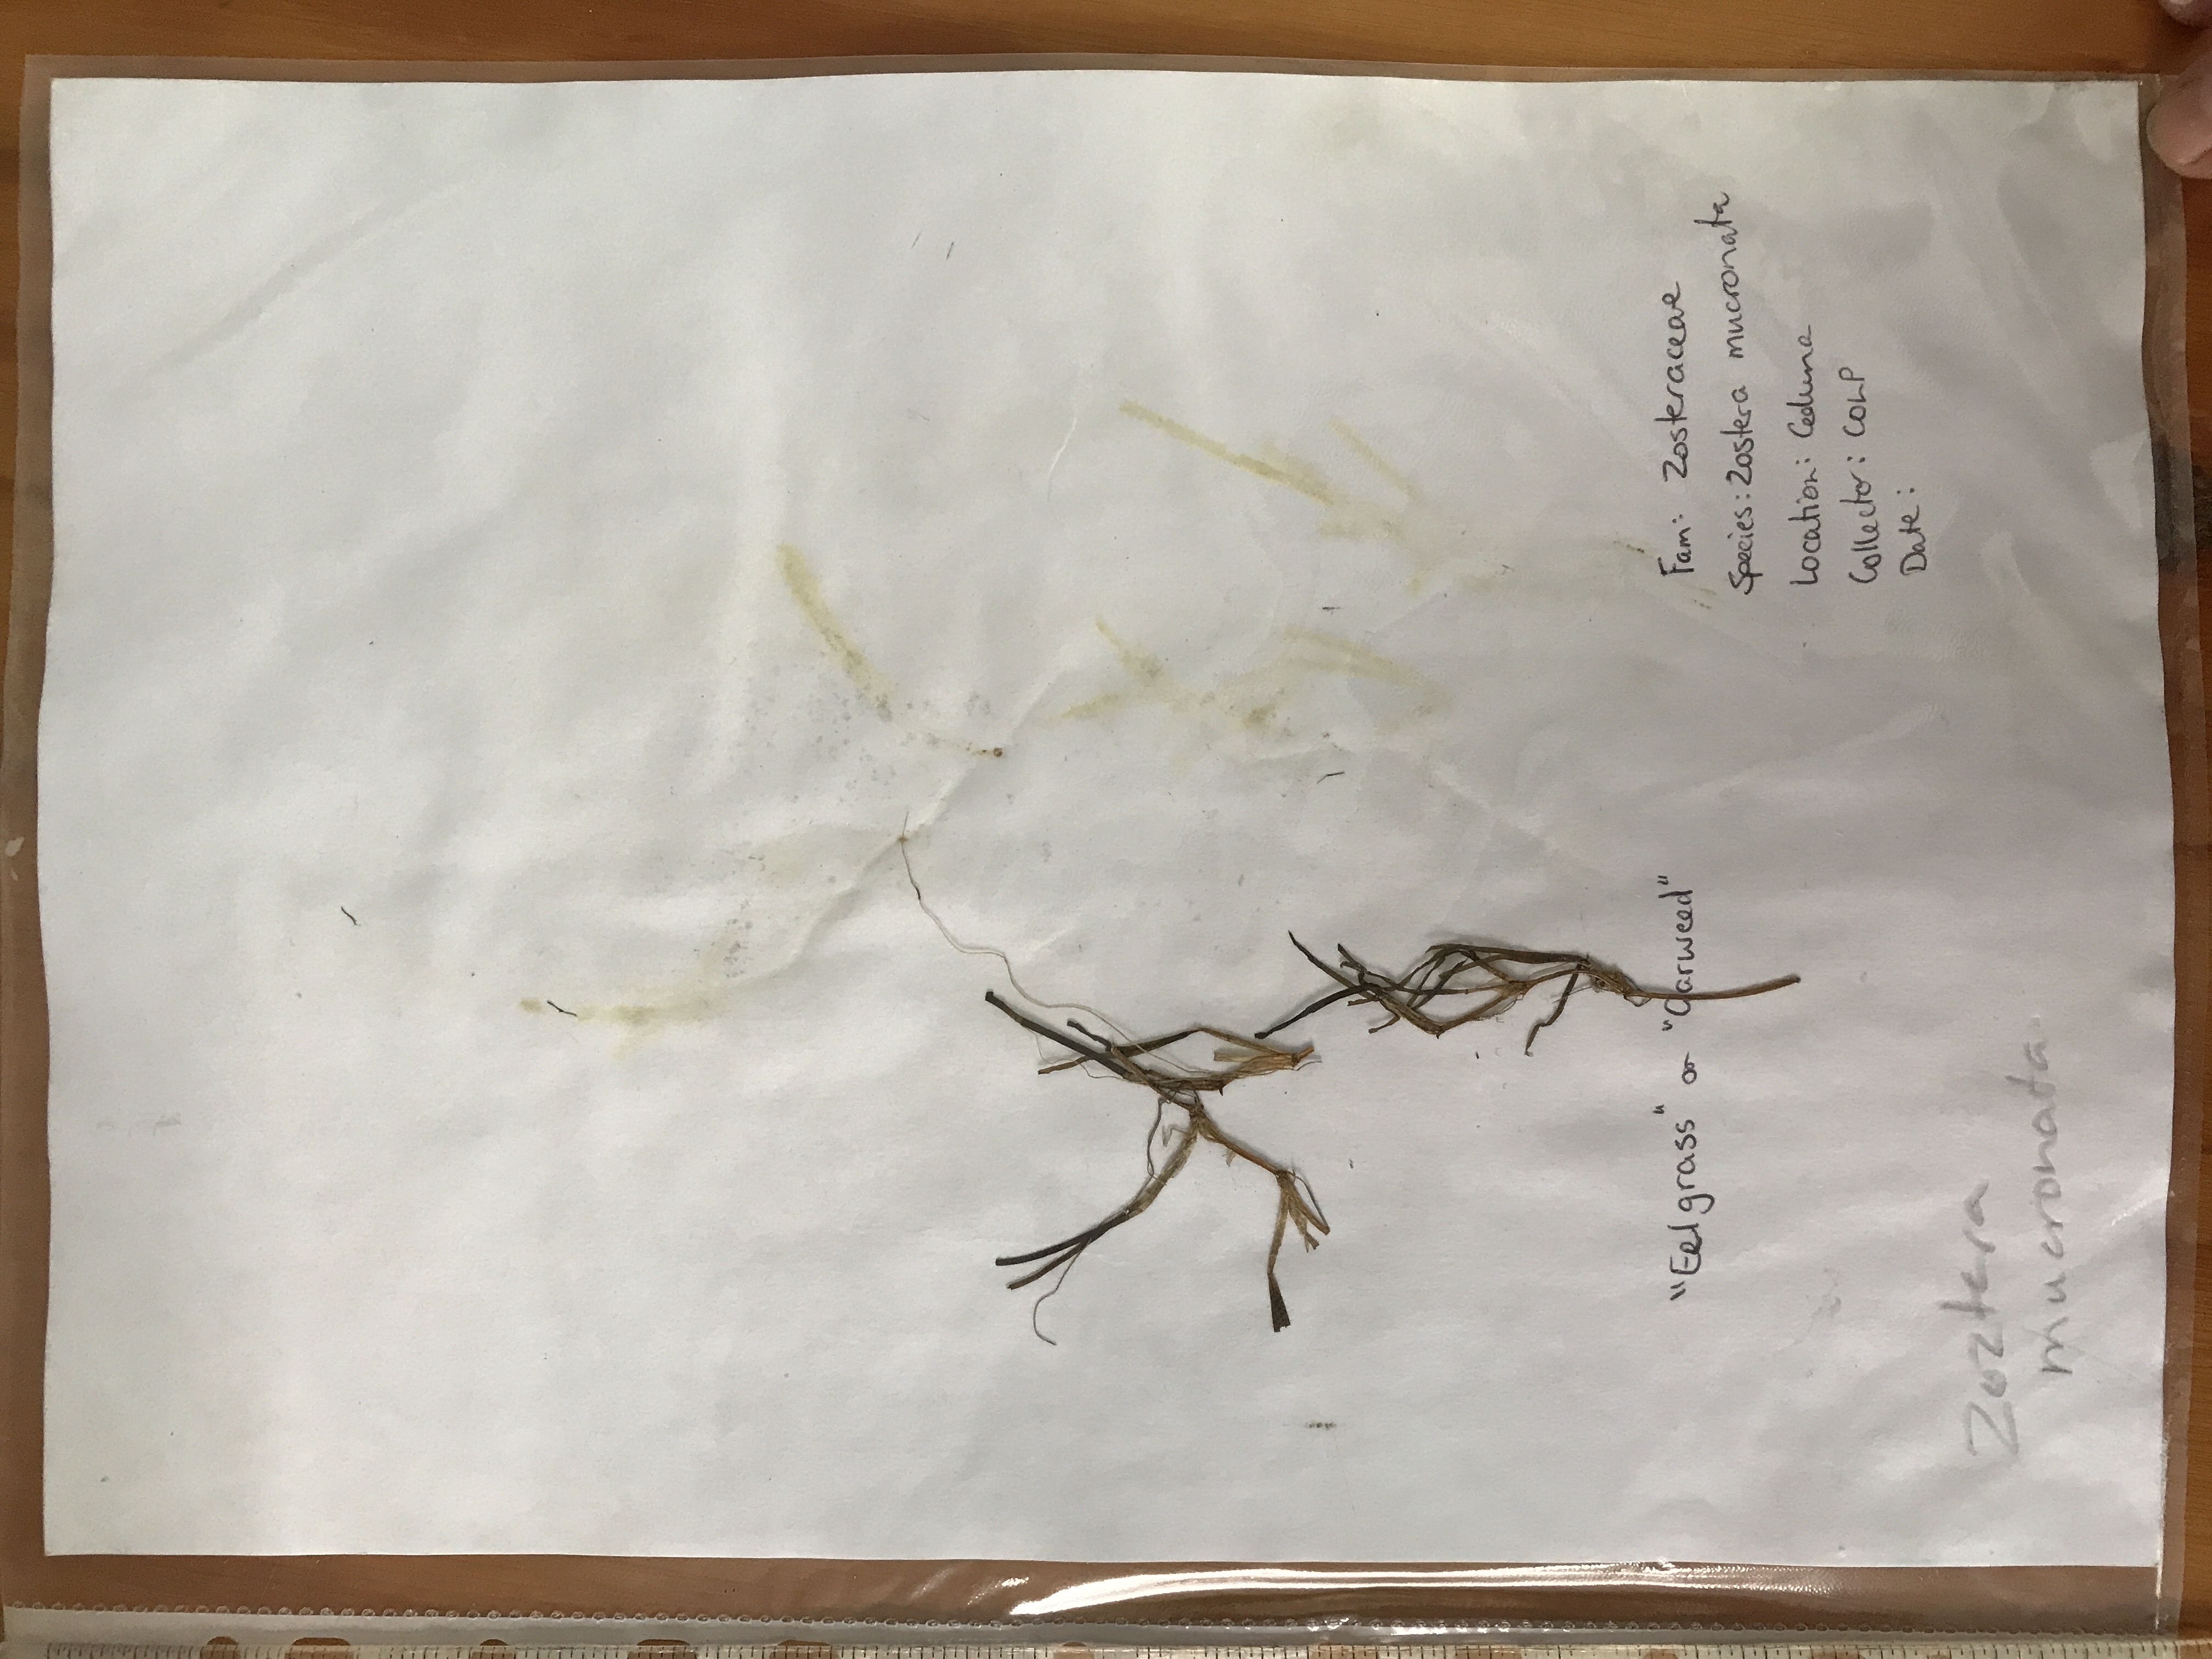 "Eelgrass" or "Garweed"
Fam: Zosteraceae
Species: Zostera mucronata
Location: Ceduna
Collector: COLP
Date:
Zoztera
mucronata